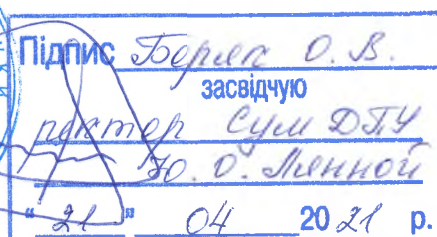 Підпис Боряк О. В.
засвідчую
ректор Сум ДПУ
Ю. О. Лянной
"21" 04 2021 р.